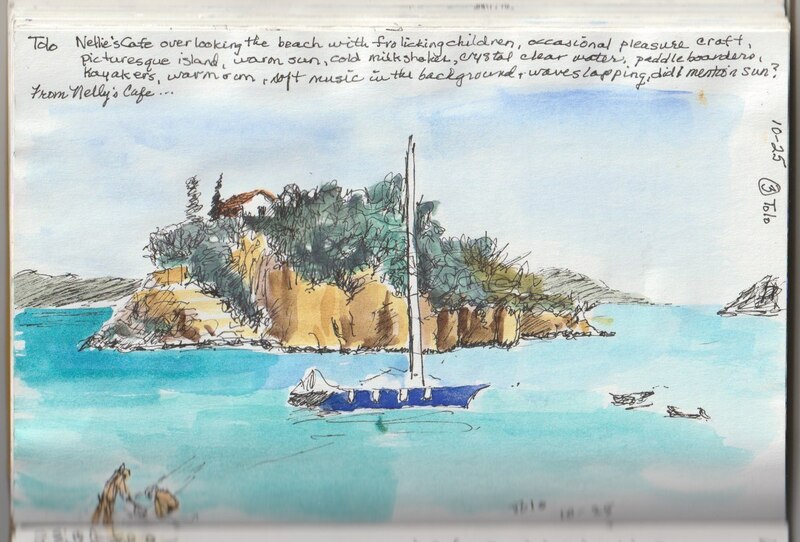 Tolo Nellie's Cafe overlooking the beach with frolicking children, occasional pleasure craft,
picturesque island, warm sun, cold milkshakes, crystal clear water, paddleboarders,
kayakers, warm sun, soft music in the background, waves lapping, did I mention sun?
From Nelly's Cafe...
10-25
③ Tolo